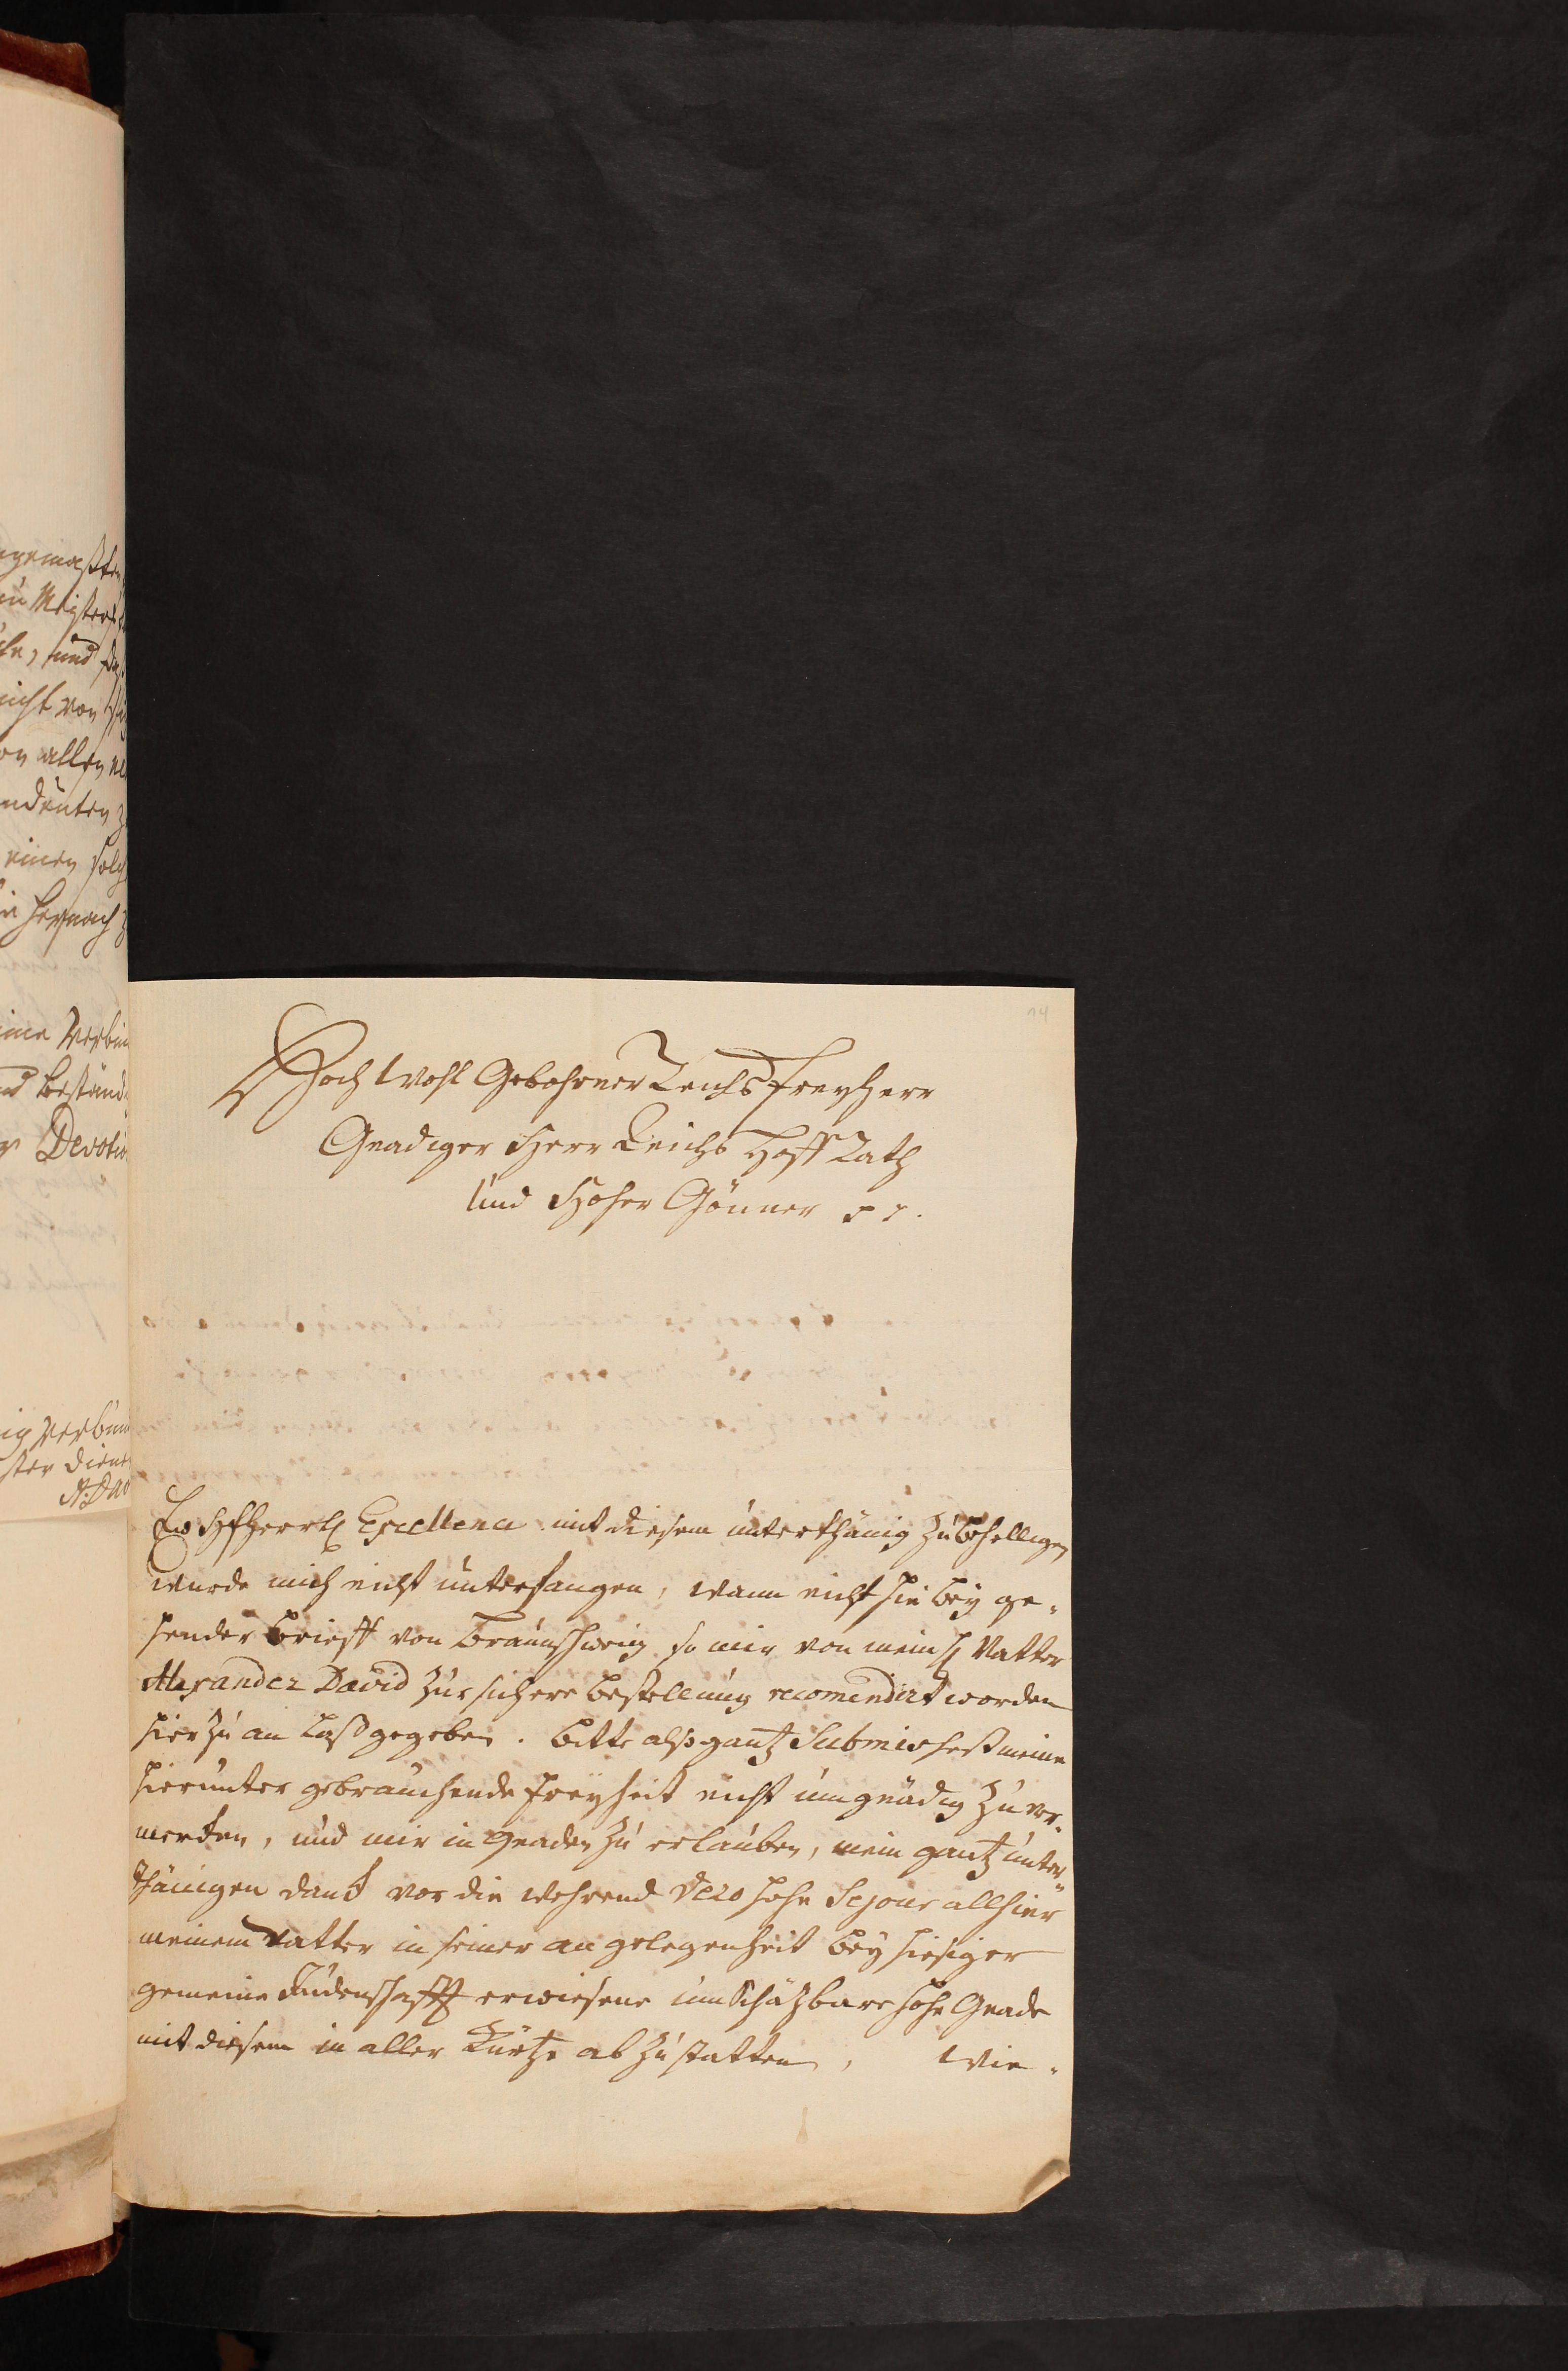 14
Hoch Wohl Gebohrner Reichs Freyherr
Gnadiger Herr Reichs Hoff Rath
Und Hoher Gönner
Ew Excellence mit diesem unterthänig zu behelligen
wurde mich nicht unterfangen, wann nicht hie bey ge-
hender brieff von braunschweig so mir von mein Vatter
Alexander David zur sichere bestellung recomendirt worden
hier zu an laß gegeben. bitte also gantz Submis meine
hierunter gebrauchende freyheit nicht ungnädig zu ver-
mercken, und mir in gnaden zu erlauben, mein gantz unter-
thänigen danck vor die wehrend Dero hohe Sejour allhier
meinem Vatter in seiner an gelegenheit bey hiesiger
gemeine Judenschafft erwiesene unschätzbare hohe Gnade
mit diesem in aller Kürtze ab zu statten, Wie-
nicht von
on allen
einen solch
hernach
Devotio